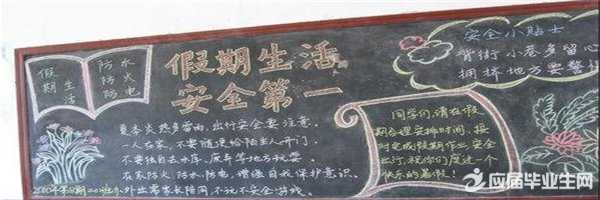 假期生活
防水
防火
防电
假期生活
安全第一
夏季炎热多雷雨,出行安全要注意。
一人在家,不要随便给陌生人开门,
不要独自去水库、废弃等地方玩耍。
在家防火、防水、防电,增强自我保护意识。
外出需家长陪同,不玩不安全游戏。
安全小贴士
背街小巷多留心
拥挤地方要警
同学们,请在假
期合理安排时间,按
时完成假期作业,安全
出行,祝你们度过一个
快乐的暑假!
应届毕业生网